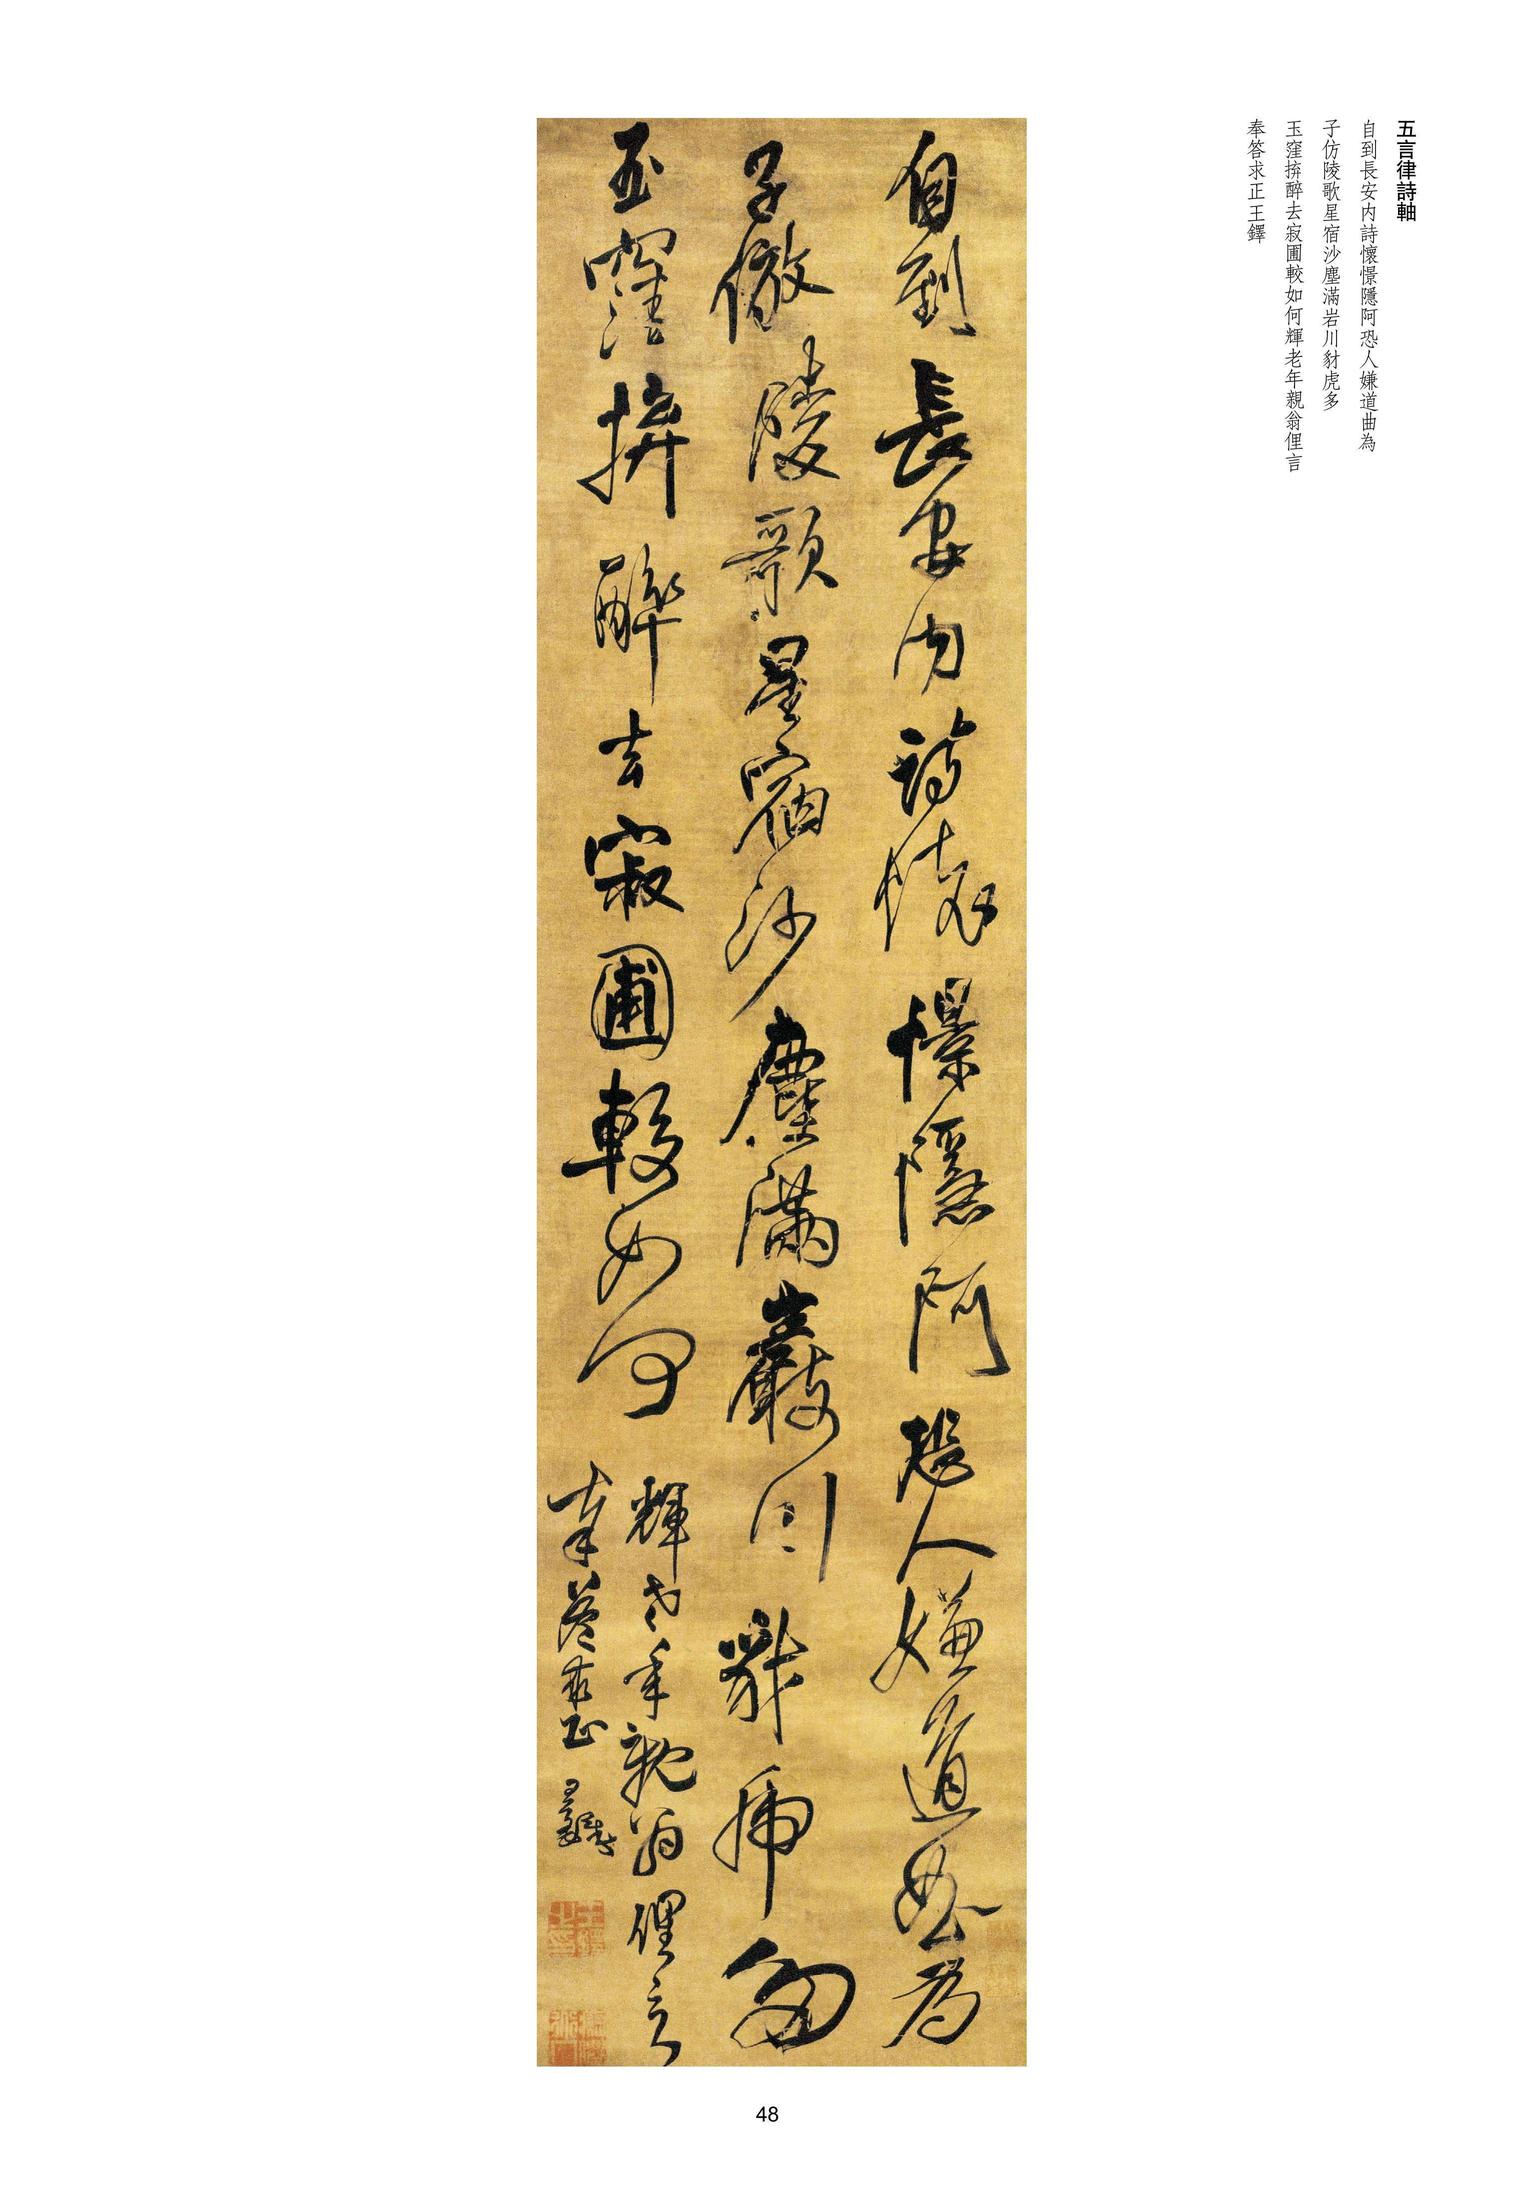 五言律詩軸
自到長安内詩懷憬隱阿恐人嫌道曲為
子仿陵歌星宿沙塵滿岩川豺虎多
玉窪拚醉去寂圃較如何輝老年親翁俚言
奉答求正王鐸
自到長安内詩懷憬隱阿恐人嫌道曲為
子倣陵歌星宿沙塵滿巖川豺虎多
玉窪拚醉去寂圃較如何
輝老年親翁俚言
奉答求正王鐸
48